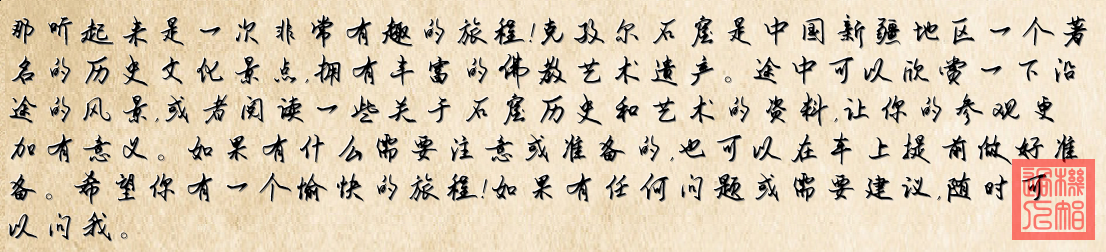 那听起来是一次非常有趣的旅程!克孜尔石窟是中国新疆地区一个著
名的历史文化景点,拥有丰富的佛教艺术遗产。途中可以欣赏一下沿
途的风景,或者阅读一些关于石窟历史和艺术的资料,让你的参观更
加有意义。如果有什么需要注意或准备的,也可以在车上提前做好准
备。希望你有一个愉快的旅程!如果有任何问题或需要建议,随时可
以问我。